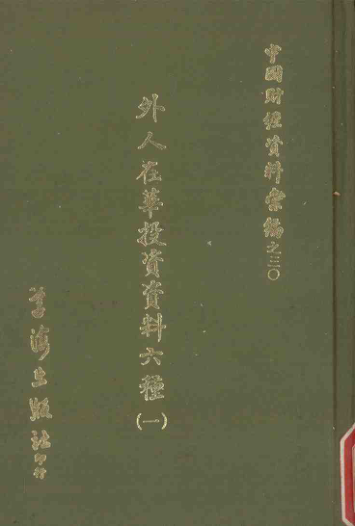 中國財經資料彙編之三〇
外人在華投資資料六種(一)
學海出版社印行